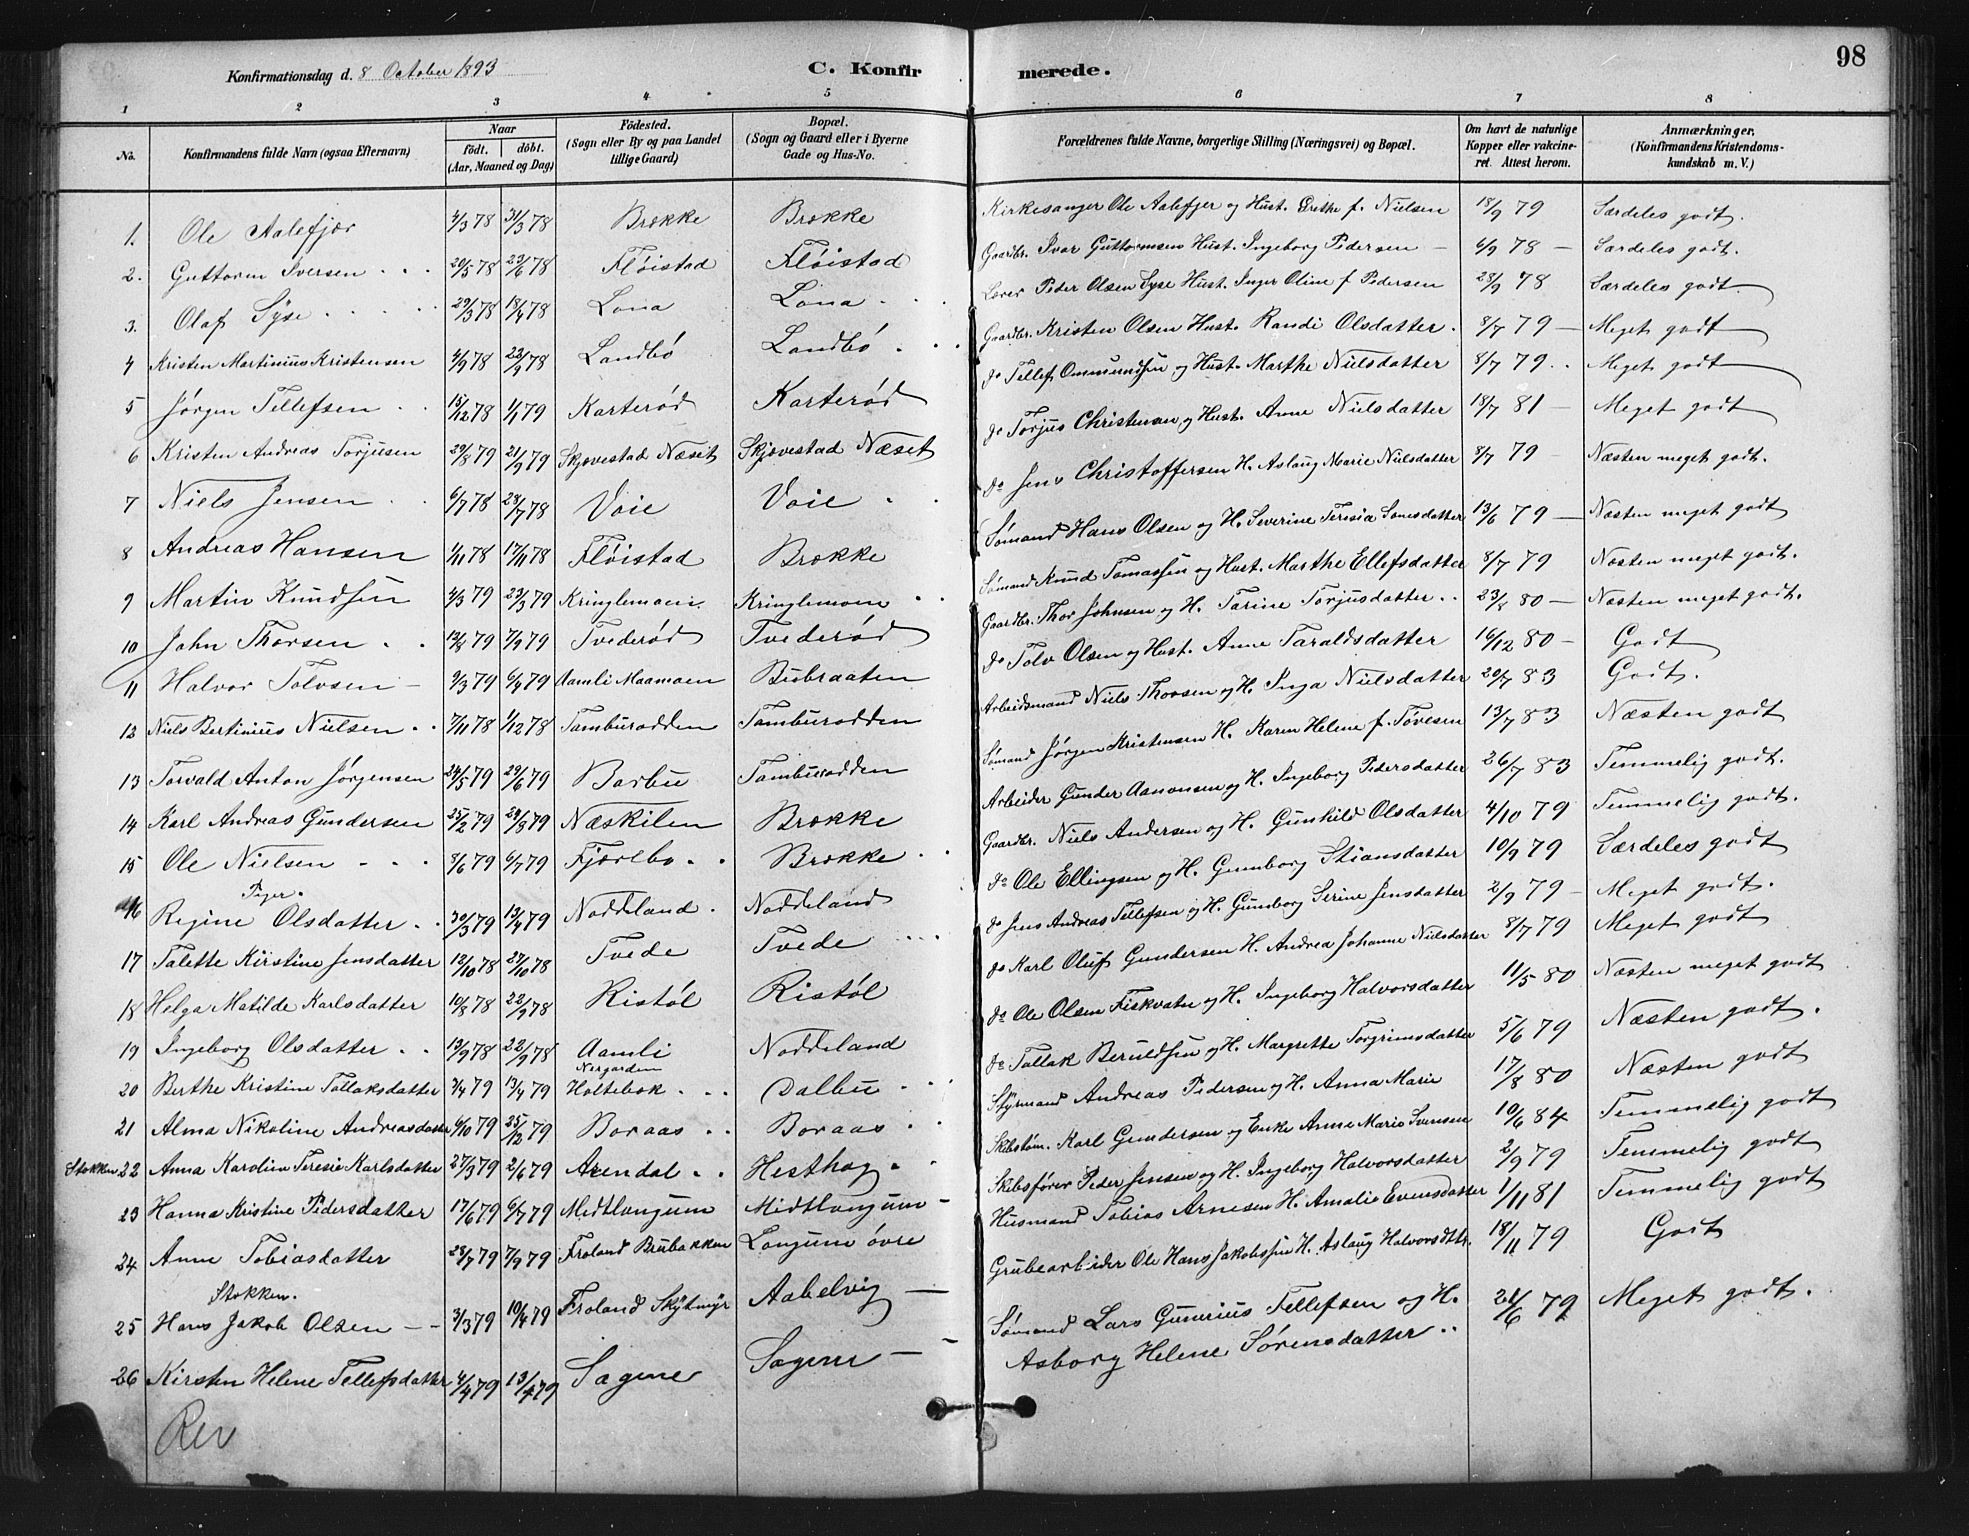 Konfirmationsdag d. 8 October 1893 C. Konfirmerede. 98
1 2 3 4 5 6 7 8
No. Konfirmandens fulde Navn (ogsaa Efternavn) Naar födt. döbt. (Aar, Maaned og Dag) Födested. (Sogn eller By og paa Landet tillige Gaard) Bopæl. (Sogn og Gaard eller i Byerne Gade og Hus-No. Forældrenes fulde Navne, borgerlige Stilling (Næringsvei) og Bopæl. Om havt de naturlige Kopper eller vakcineret. Attest herom. Anmærkninger. (Konfirmandens Kristendomskundskab m. V.)
1. Ole Aalefjær 4/3 78 31/3 78 Brække Brække Kirkesanger Ole Aalefjer og Hust. Grethe f. Nielsen 18/9 79 Særdeles godt.
2. Guttorm Iversen 20/5 78 23/6 78 Flöistad Flöistad Gaardbr. Ivar Guttormsen Hust. Ingeborg Pedersen 6/9 78 Særdeles godt.
3. Olaf Syse 29/3 78 18/4 78 Lona Lona Lærer Peder Olsen Syse Hust. Inger Oline f Pedersen 28/9 78 Særdeles godt.
4 Kristen Martinius Kristensen 4/9 78 22/9 78 Landbö Landbö Gaardbr. Kristen Olsen Hust. Randi Olsdatter. 8/7 79 Meget godt
5 Jørgen Tellefsen 15/12 78 1/1 79 Karterød Karterød do Tellef Ommundsen og Hust. Marthe Nielsdatter 8/7 79 Meget godt
6 Kristen Andreas Torjusen 29/8 79 21/9 79 Skjævestad Næset Skjævestad Næset do Torjus Christensen og Hust. Anne Nielsdatter 18/7 81 Meget godt
7 Niels Jensen 6/7 78 28/7 78 Voie Voie do Jens Christoffersen H. Aslaug Marie Nielsdatter 8/7 79 Næsten meget godt.
8 Andreas Hansen 1/11 78 17/11 78 Flöistad Brække Sømand Hans Olsen og H. Severine Teresia Sonesdatter 13/6 79 Næsten meget godt
9 Martin Knudsen 4/3 79 23/3 79 Kringlemoen Kringlemoen Sømand Knud Tomassen og Hust. Marthe Ellefsdatter 8/7 79 Næsten meget godt.
10 John Thorsen 12/8 79 7/9 79 Tvederød Tvederød Gaardbr. Thor Johnsen og H. Tarine Torjusdatter 23/8 80 Næsten meget godt.
11 Halvor Tolvsen 9/3 79 6/4 79 Aamli Maamoen Bisbraaten do Tolv Olsen og Hust. Anne Taraldsdatter 16/12 80 Godt
12 Niels Bertinius Nielsen 7/11 78 1/12 78 Tamburodden Tamburodden Arbeidsmand Niels Thorsen og H. Inga Nielsdatter 20/7 83 Godt.
13 Torvald Anton Jørgensen 24/5 79 29/6 79 Barbu Tamburodden Sømand Jørgen Kristensen H. Karen Helene f. Tøvesen 13/7 83 Næsten godt
14 Karl Andreas Gundersen 25/2 79 24/8 79 Næskilen Brække Arbeider Gunder Aanonsen og H. Ingeborg Pedersdatter 26/7 83 Temmelig godt.
15 Ole Nielsen 8/6 79 6/7 79 Fjærlbo Brække Gaardbr. Niels Andersen og H. Gunhild Olsdatter 4/10 79 Temmelig godt.
Piger.
16 Regine Olsdatter 20/3 79 13/4 79 Noddeland Noddeland do Ole Ellingsen og H. Gumborg Stiansdatter 10/9 79 Særdeles godt
17 Talette Kirstine Jensdatter 12/10 78 27/10 78 Tvede Tvede do Jens Andreas Tellefsen og H. Gunborg Serine Jensdatter 2/9 79 Meget godt.
18 Helga Matilde Karlsdatter 10/8 78 22/9 78 Ristöl Ristöl do Karl Oluf Gundersen H. Andrea Johanne Nielsdatter 8/7 79 Meget godt
19 Ingeborg Olsdatter 13/9 78 22/9 78 Aamli Nergarden Noddeland do Ole Olsen Fiskvatn og H. Ingeborg Halvorsdatter 11/5 80 Næsten meget godt
20 Berthe Kristine Tallaksdatter 3/4 79 13/4 79 Holtebok Dalbu do Tallak Beruldsen og H. Margrette Torgrimsdatter 5/6 79 Næsten godt.
21 Alma Nikoline Andreasdatter 6/10 79 25/12 79 Boraas Boraas Styrmand Andreas Pedersen og H. Anna Marie 17/8 80 Næsten godt
Stokken 22 Anna Karolina Teresie Karlsdatter 27/3 79 2/6 79 Arendal Hesthag Skibstøm. Karl Gundersen og Enke Anne Marie Svensen 10/6 84 Temmelig godt
23 Hanna Kristine Pedersdatter 17/6 79 6/7 79 Midtlongum Midtlongum Skibsfører Peder Jensen og H. Ingeborg Halvorsdatter 2/9 79 Temmelig godt
24 Anne Tobiasdatter 28/7 79 7/9 79 Froland Brubakken Longum øvre Husmand Tobias Arnesen H. Amalie Evensdatter 1/11 81 Temmelig godt
Stokken.
25 Hans Jakob Olsen 3/3 79 10/4 79 Froland Skytmyr Aabelvig Grubearbeider Ole Hans Jakobsen H. Aslaug Halvorsdtr. 18/11 79 Godt
26 Kirsten Helene Tellefsdatter 4/4 79 13/4 79 Sagene Sagene Sømand Lars Gunerius Tellefsen og H. 24/6 79 Meget godt.
Asborg Helene Sørensdatter
Rev